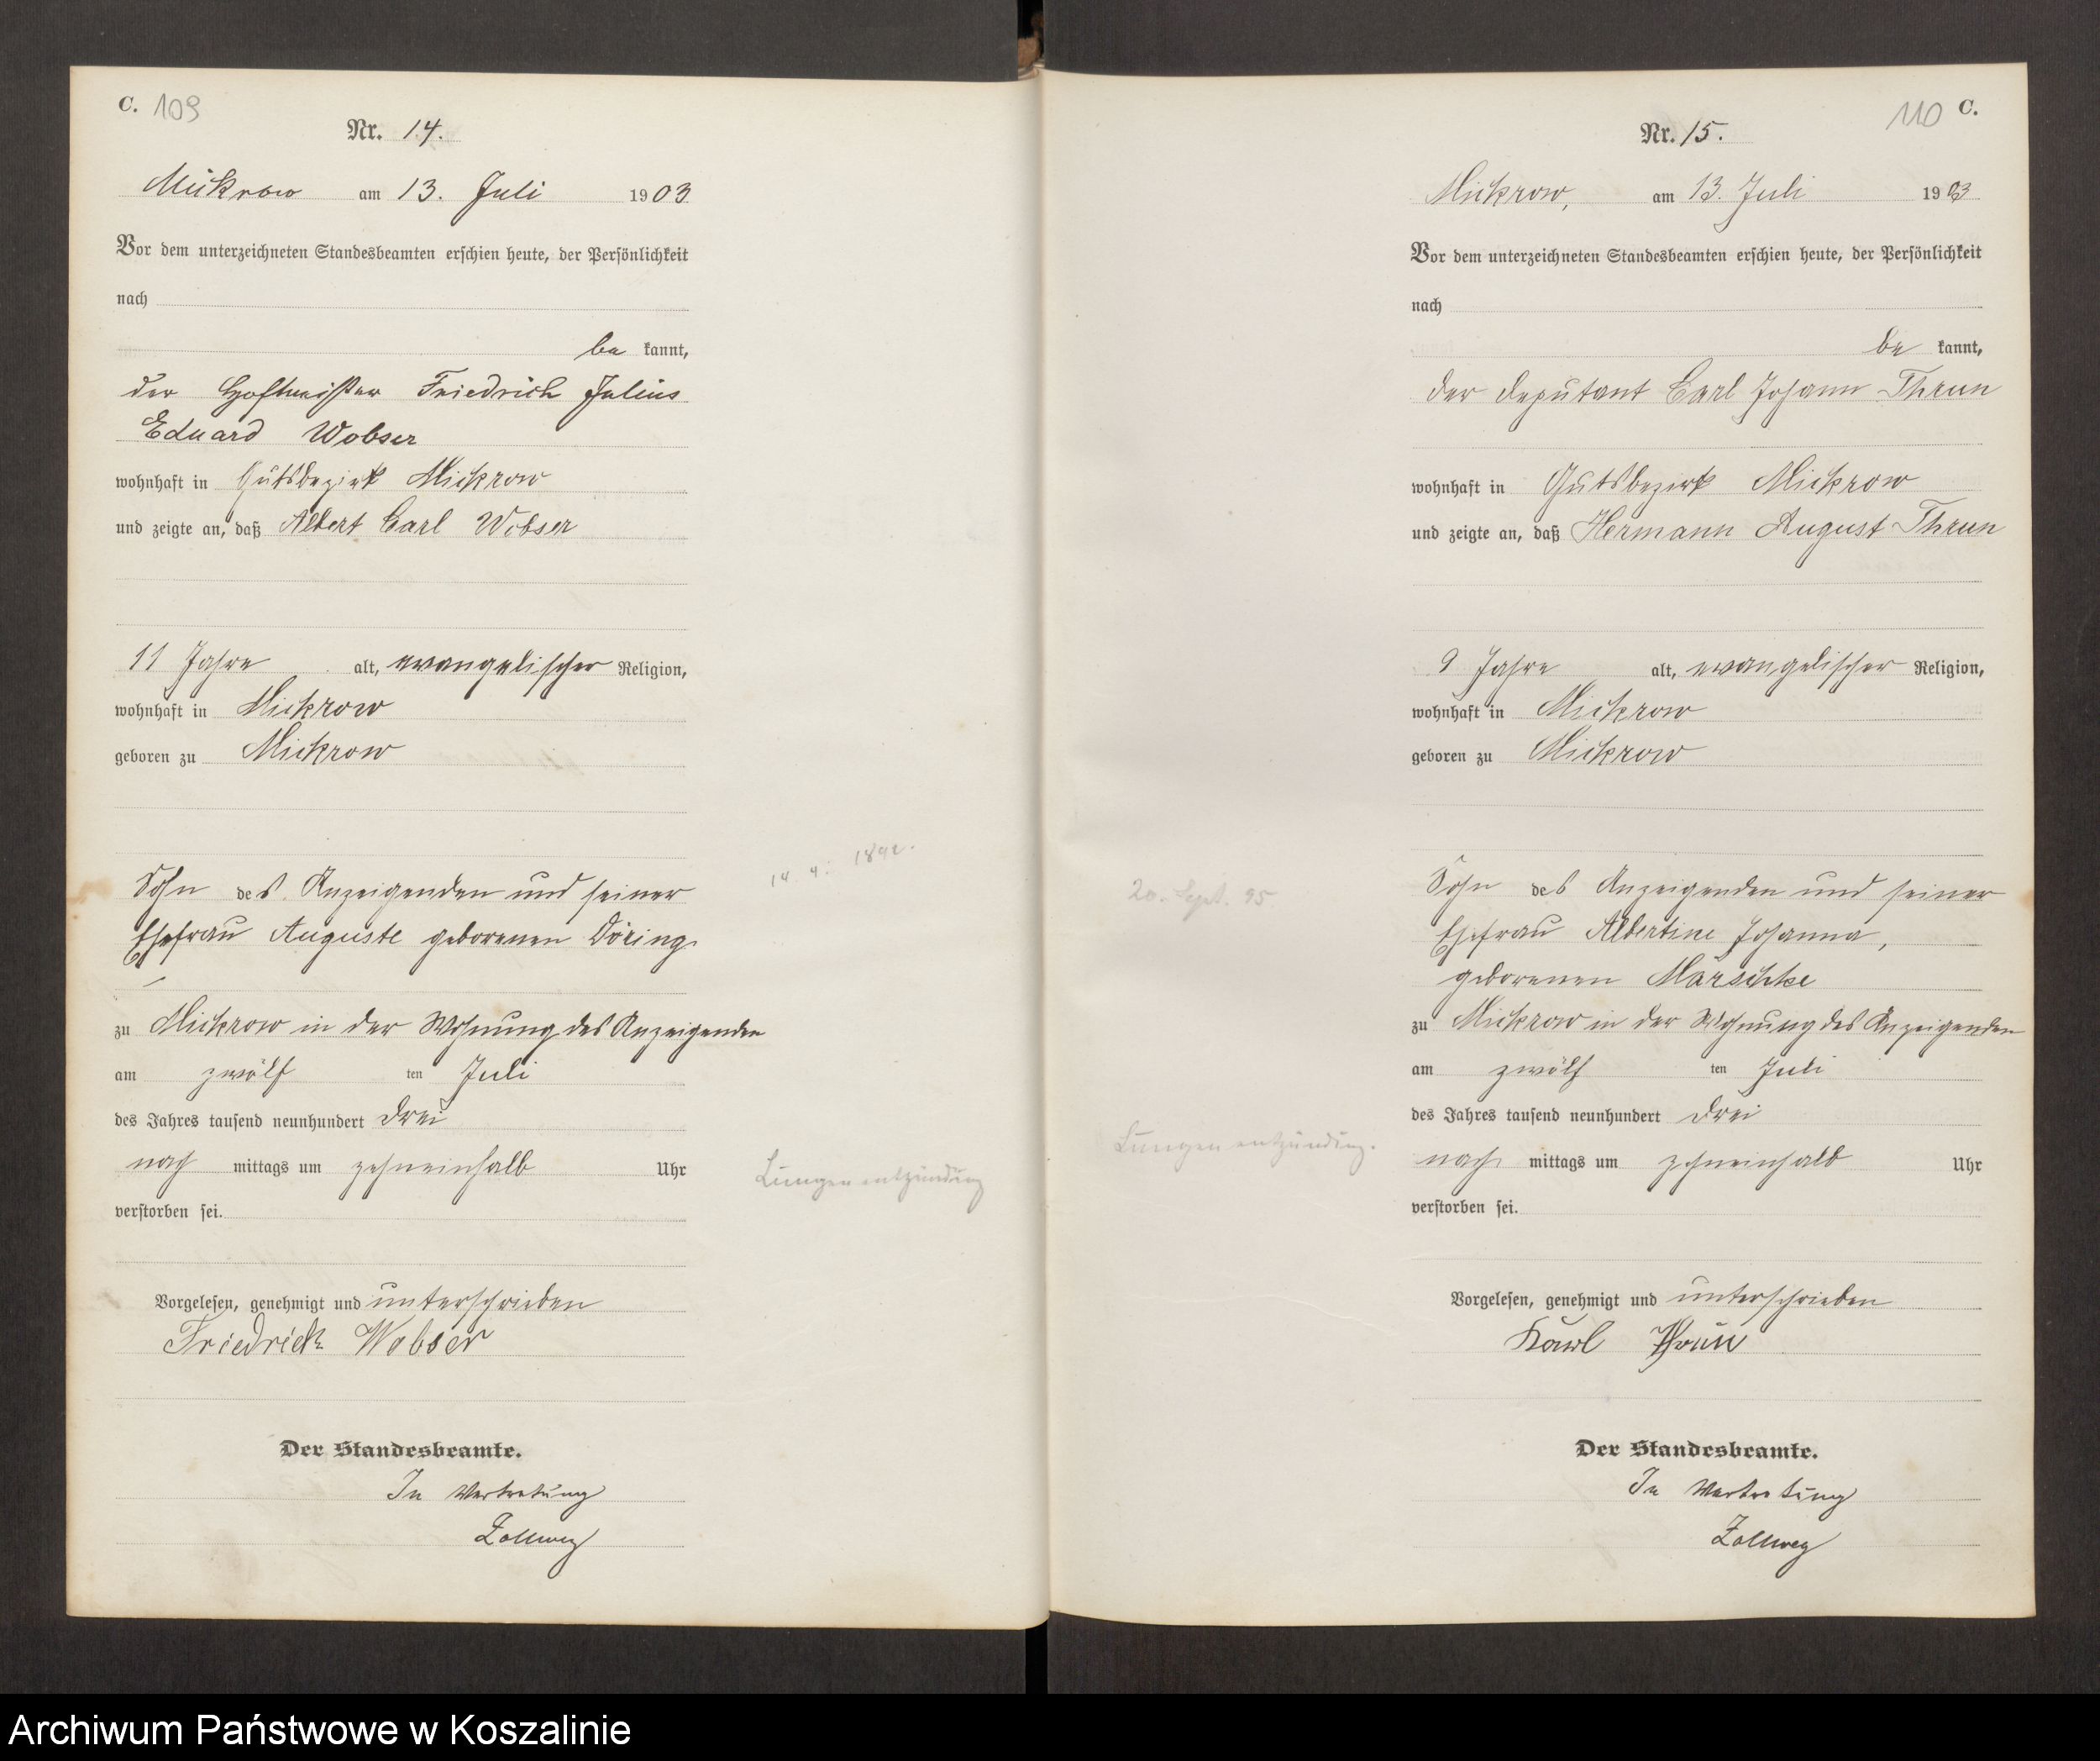 C. 109
Nr. 14.
Mickrow am 13. Juli 1903
Vor dem unterzeichneten Standesbeamten erschien heute, der Persönlichkeit
nach
be kannt,
der Hofmeister Friedrich Julius
Eduard Wobser
wohnhaft in Gutsbezirk Mickrow
und zeigte an, daß Albert Carl Wobser
11 Jahre alt, evangelischer Religion,
wohnhaft in Mickrow
geboren zu Mickrow
14. 4. 1892.
Sohn des Anzeigenden und seiner
Ehefrau Auguste geborenen Döring
zu Mickrow in der Wohnung des Anzeigenden
am zwölf ten Juli
des Jahres tausend neunhundert drei
nach mittags um zehneinhalb Uhr
Lungenentzündung
verstorben sei.
Vorgelesen, genehmigt und unterschrieben
Friedrich Wobser
Der Standesbeamte.
In Vertretung
Zollweg
110 C.
Nr. 15.
Mickrow, am 13. Juli 1903
Vor dem unterzeichneten Standesbeamten erschien heute, der Persönlichkeit
nach
be kannt,
der Deputant Carl Johann Thrun
wohnhaft in Gutsbezirk Mickrow
und zeigte an, daß Hermann August Thrun
9 Jahre alt, evangelischer Religion,
wohnhaft in Mickrow
geboren zu Mickrow
20. Sept. 95
Sohn des Anzeigenden und seiner
Ehefrau Albertine Johanna,
geborenen Marschke
zu Mickrow in der Wohnung des Anzeigenden
am zwölf ten Juli
des Jahres tausend neunhundert drei
Lungenentzündung.
nach mittags um zehneinhalb Uhr
verstorben sei.
Vorgelesen, genehmigt und unterschrieben
Karl Thrun
Der Standesbeamte.
In Vertretung
Zollweg
Archiwum Państwowe w Koszalinie